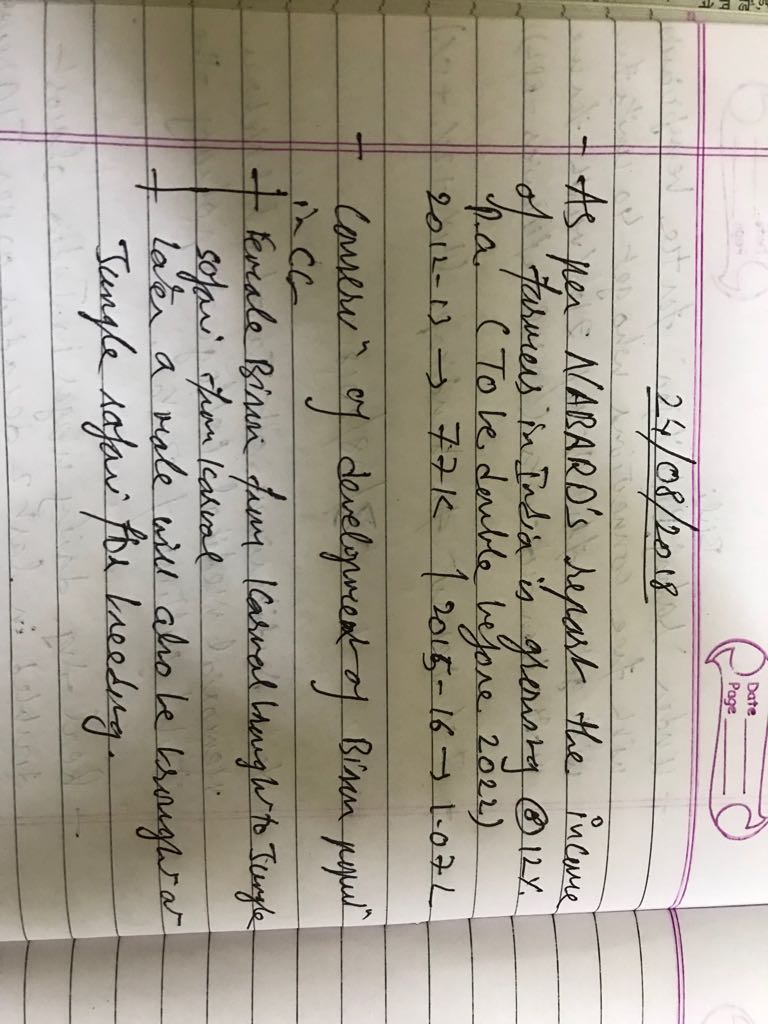 Date
Page
24/08/2018
- As per NABARD's report the income
of farmers in India is growing @ 12%
p.a. (To be double before 2022)
2012-13 → 77K | 2015-16 → 1.07L
- Conserv" of development of Bison popul"
in CG
Female Bison from Kasval brought to Jungle
safari from Kasval
later a male will also be brought
Jungle safari for breeding.